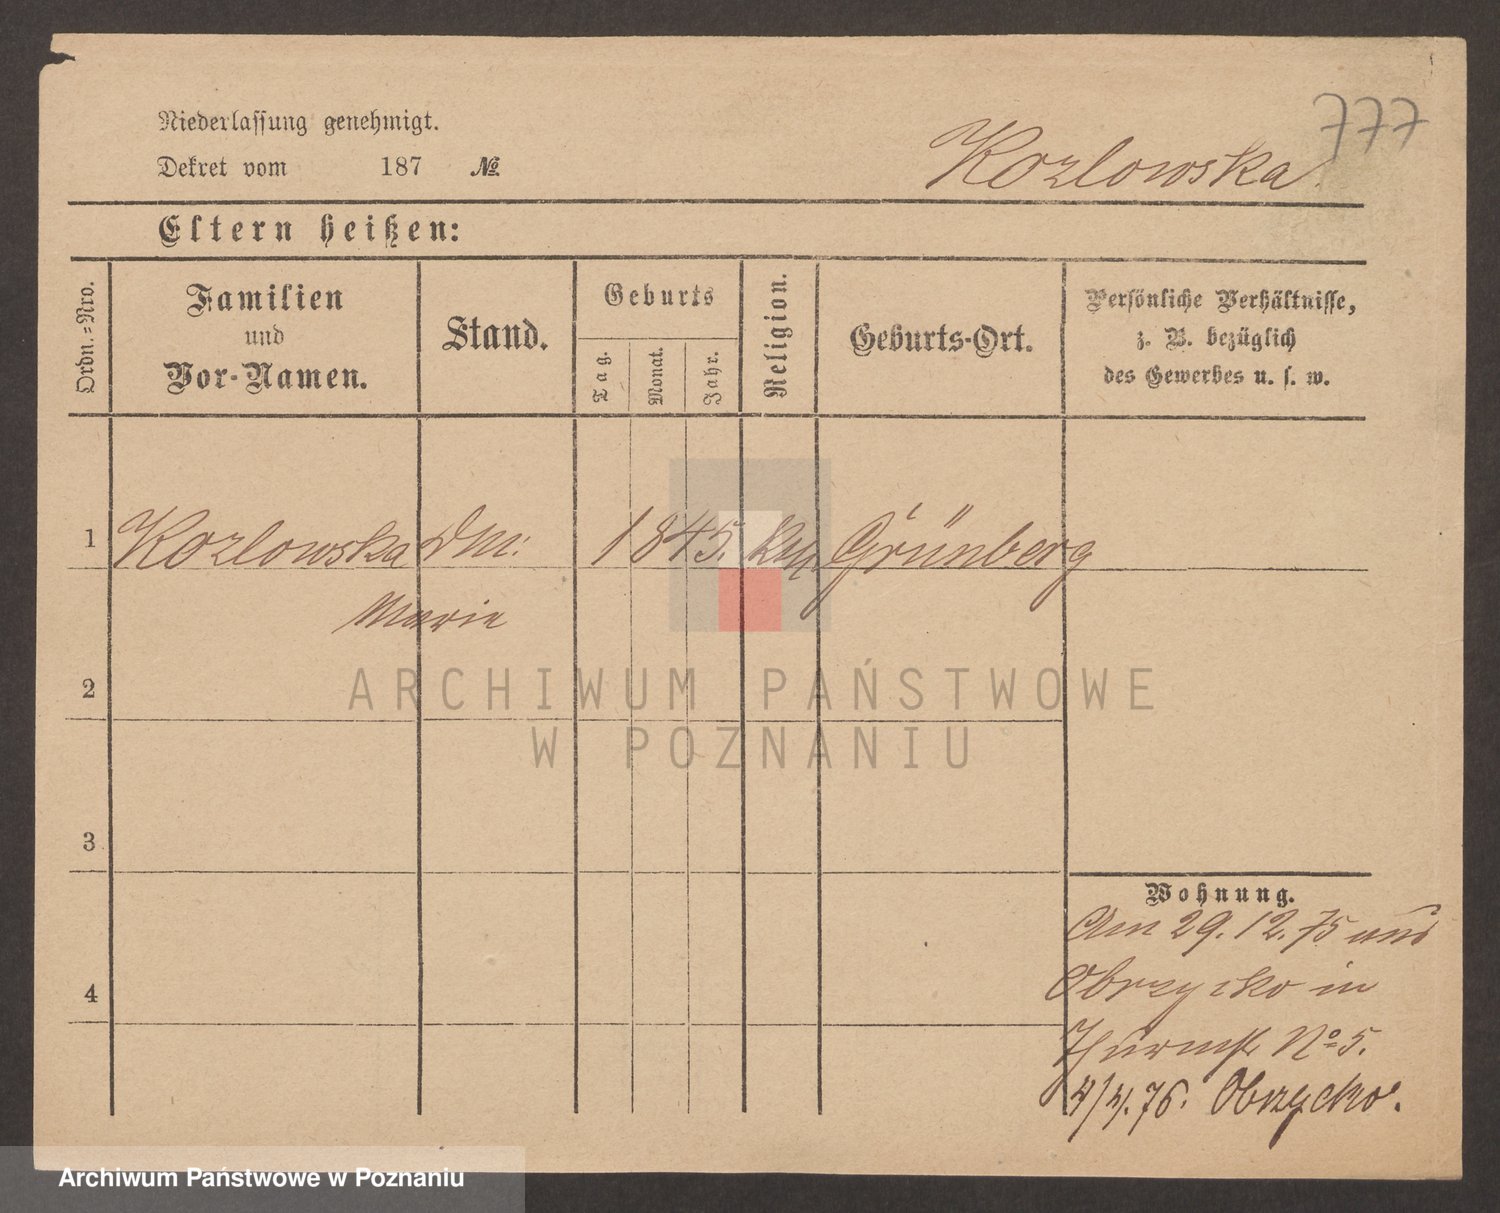 777
Niederlassung genehmigt.
Dekret vom 187 №
Kozlowska
Eltern heißen:
Ordn.=Nro.
Familien
und
Vor-Namen.
Stand.
Geburts
Tag.
Monat.
Jahr.
Religion.
Geburts-Ort.
Persönliche Verhältnisse,
z. B. bezüglich
des Gewerbes u. s. w.
1 Kozlowska 1845. Grünberg
Marie
2
3
4
Wohnung.
Am 29. 12. 75 aus
Obrzycko in
Thurmstr No 5.
4/4. 76. Obrzycko.
ARCHIWUM PAŃSTWOWE
W POZNANIU
Archiwum Państwowe w Poznaniu